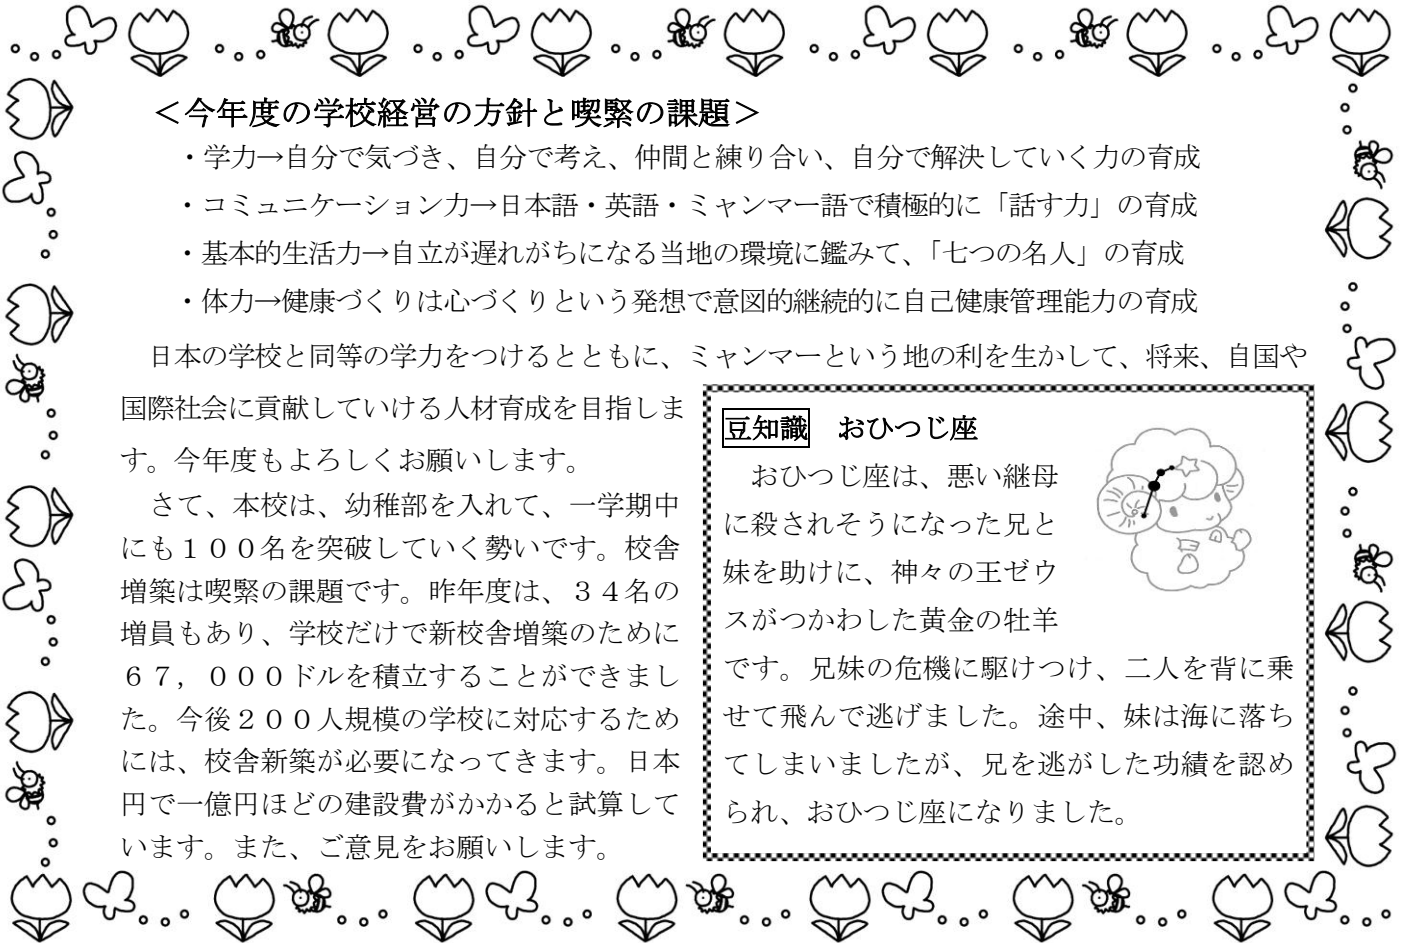 ＜今年度の学校経営の方針と喫緊の課題＞
・学力→自分で気づき、自分で考え、仲間と練り合い、自分で解決していく力の育成
・コミュニケーション力→日本語・英語・ミャンマー語で積極的に「話す力」の育成
・基本的生活力→自立が遅れがちになる当地の環境に鑑みて、「七つの名人」の育成
・体力→健康づくりは心づくりという発想で意図的継続的に自己健康管理能力の育成
日本の学校と同等の学力をつけるとともに、ミャンマーという地の利を生かして、将来、自国や
国際社会に貢献していける人材育成を目指しま
す。今年度もよろしくお願いします。
さて、本校は、幼稚部を入れて、一学期中
にも１００名を突破していく勢いです。校舎
増築は喫緊の課題です。昨年度は、３４名の
増員もあり、学校だけで新校舎増築のために
６７，０００ドルを積立することができまし
た。今後２００人規模の学校に対応するため
には、校舎新築が必要になってきます。日本
円で一億円ほどの建設費がかかると試算して
います。また、ご意見をお願いします。
豆知識　おひつじ座
おひつじ座は、悪い継母
に殺されそうになった兄と
妹を助けに、神々の王ゼウ
スがつかわした黄金の牡羊
です。兄妹の危機に駆けつけ、二人を背に乗
せて飛んで逃げました。途中、妹は海に落ち
てしまいましたが、兄を逃がした功績を認め
られ、おひつじ座になりました。